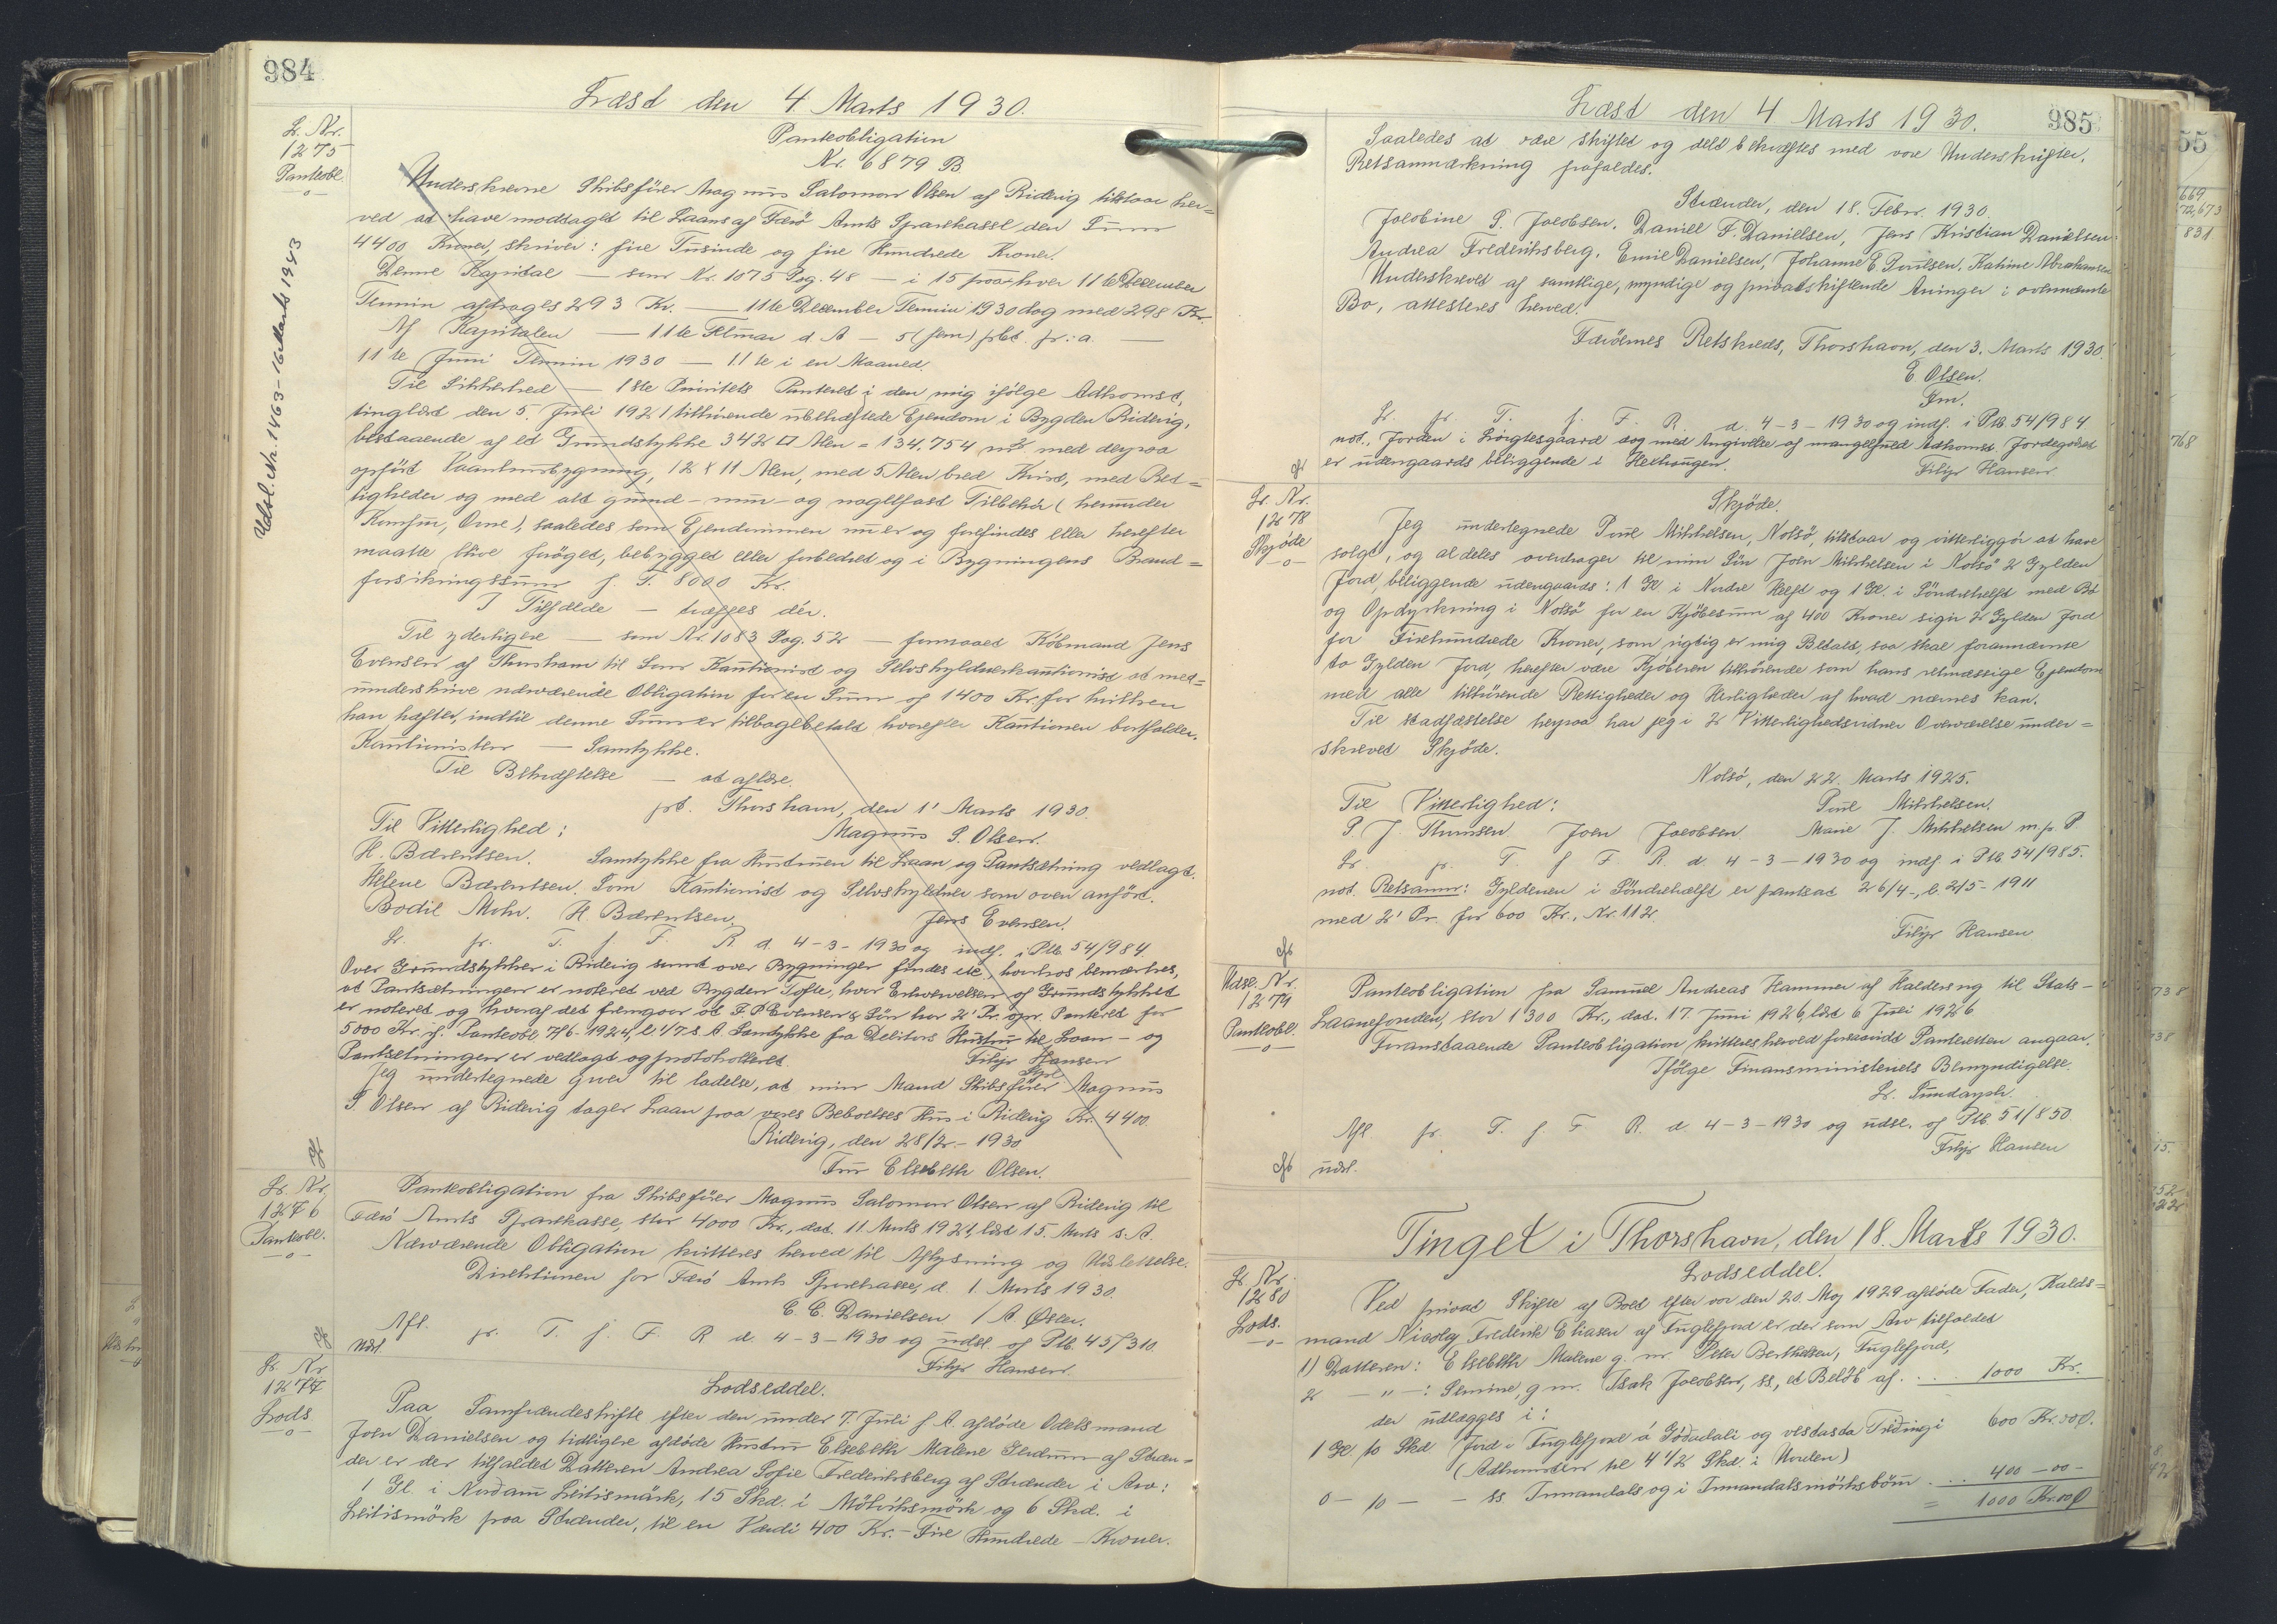 984
Læst den 4 Marts 1930.
L. Nr.
1275
Panteobl.
Udsl. Nr. 1463 - 16 Marts 1943
Panteobligation
Nr. 6879 B
Underskrevne Skibsfører Magnus Salomon Olsen af Ridevig tilstaar her=
ved at have modtaget til Laans af Færø Amts Sparekasse den Sum
4400 Kroner, skriver: fire Tusinde og fire Hundrede Kroner.
Denne Kapital — som Nr. 1075 Pag. 48 — i 15 paa hver 11te December
Termin afdrages 293 Kr. — 11te December Termin 1930 dog med 298 Kr.
Af Kapitalen — 11te d. A — 5 (fem) pCt. pr. a. —
11te Juni Termin 1930 — 11te i en Maaned.
Til Sikkerhed — 1ste Prioritets Panteret i den mig ifølge Adkomst,
tinglæst den 5. Juli 1921 tilhørende ubehæftede Ejendom i Bygden Ridevig,
bestaaende af et Grundstykke 342 □ Alen = 134,754 m² med derpaa
opført Vaaningsbygning, 12 x 11 Alen, med 5 Alen bred Kvist, med Ret=
tigheder og med alt grund- mur- og nagelfast Tilbehør (herunder
Komfur, Ovne), saaledes som Ejendommen nu er og forefindes eller herefter
maatte blive forøget, bebygget eller forbedret og i Bygningens Brand=
forsikringssum p. T. 8000 Kr.
I Tilfælde — træffes dér.
Til yderligere — som Nr. 1083 Pag. 52 — formaaet Købmand Jens
Evensen af Thorshavn til Som Kautionist og Selvskyldnerkautionist at med=
underskrive nærværende Obligation for en Sum af 1400 Kr. for hvilken
han hæfter, indtil denne Sum er tilbagebetalt hvorefter Kautionen bortfalder.
Kautionisten — Samtykke.
Til Bekræftelse — at aflæse.
pt. Thorshavn, den 1' Marts 1930.
Til Vitterlighed: Magnus S. Olsen.
H. Bærentsen. Samtykke fra Hustruen til Laan og Pantsætning vedlagt.
Helene Bærentsen. Som Kautionist og Selvskyldner som oven anført.
Bodil Mohr. H. Bærentsen. Jens Evensen.
L. pr. T. f. F. R. d. 4-3-1930 og indf. i Ptb. 54/984
Over Grundstykker i Ridevig samt over Bygninger findes ike, hvorhos bemærkes,
at Pantsætningen er noteret ved Bygden Tofte, hvor Erhvervelsen af Grundstykket
er noteret og hvoraf det fremgaar at F. P. Evensen & Søn har 2' Pr. opr. Panteret for
5000 Kr. if. Panteobl. 7/6-1924, l. 1/7 s. A. Samtykke fra Debitors Hustru til Laan- og
Pantsetningen er vedlagt og protokolleret. Filip Hansen
Jeg undertegnede giver til ladelse, at min Mand Skibsfører Magnus
S. Olsen af Ridevig tager Laan paa vores Beboelses Hus i Ridevig Kr. 4400.
Ridevig, den 28/2-1930
Fru Elsebeth Olsen.
L. Nr.
1276
Panteobl.
Panteobligation fra Skibsfører Magnus Salomon Olsen af Ridevig til
Færø Amts Sparekasse, stor 4000 Kr., dat. 11. Marts 1921, læst 15. Marts s. A.
Nærværende Obligation kvitteres herved til Aflysning og Udslettelse.
Direktionen for Færø Amts Sparekasse, d. 1. Marts 1930.
C. C. Danielsen / A. Olsen.
Afl. pr. T. f. F. R. d. 4-3-1930 og udsl. af Ptb. 45/310.
Udsl. Filip Hansen
L. Nr.
1277
Lods
Lodseddel.
Paa Samfrændeskifte efter den under 7. Juli f. A. afdøde Odelsmand
Joen Danielsen og tidligere afdøde Hustru Elsebeth Malene af Stræn-
der er der tilfaldet Datteren Andrea Sofie Frederiksberg af Strænder i Arv:
1 Gl. i Nordam Leitismark, 15 Skd. i Mølviksmørk og 6 Skd. i
Leitismørk paa Strænder, til en Værdi 400 Kr. - Fire Hundrede - Kroner.
985
Læst den 4 Marts 1930.
Saaledes at være skiftet og delt bekræftes med vore Underskrifter.
Retsanmærkning frafaldes.
Strænder, den 18. Febr. 1930.
Jacobine P. Jacobsen, Daniell F. Daniellsen, Jens Kristian Danielsen
Andrea Frederiksberg, Emil Danielsen, Johanne E. Poulsen, Katrine Abrahamsen
Underskrevet af samtlige, myndige og privatskiftende Arvinger i ovennævnte
Bo, attesteres herved.
Færöernes Retskreds, Thorshavn, den 3. Marts 1930.
E. Olsen.
Fm.
L. pr. T. f. F. R. d. 4-3-1930 og indf. i Ptb. 54/984
not., Jorden i dog med Angivelse af mangelfuld Adkomst. Jordegodset
er udengaards beliggende i Filip Hansen
L. Nr.
1278
Skjøde
Skjöde.
Jeg undertegnede Poul Mikkelsen, Nolsö, tilstaar og vitterliggör at have
solgt, og aldeles overdrager til min Sön Joen Mikkelsen i Nolsö 2 Gylden
Jord, beliggende udengaards: 1 Gl. i Nordre Helft og 1 Gl. i Söndrehelft med Bö
og Opdyrkning i Nolsö for en Kjöbesum af 400 Kroner sigir 2 Gylden Jord
for Firehundrede Kroner, som rigtig er mig Betalt, saa skal forannævnte
to Gylden Jord, herefter være Kjöberen tilhörende som hans retmæssige Ejendom
med alle tilhörende Rettigheder og Herligheder af hvad nævnes kan.
Til stadfæstelse herpaa har jeg i 2 Vitterlighedsvidner Overværelse under=
skrevet Skjöde.
Nolsö, den 22. Marts 1925.
Til Vitterlighed: Poul Mikkelsen.
P. J. Thomsen Joen Jacobsen Marie J. Mikkelsen m. p. P.
L. pr. T. f. F. R. d. 4-3-1930 og indf. i Ptb. 54/985.
not. Retsanm: Gyldenen i Söndrehælft er pantsat 26/4-, l. 2/5-1911
med 2' Pr. for 600 Kr., Nr. 112.
Filip Hansen
Udsl. Nr.
1279
Panteobl.
Panteobligation fra Samuel Andreas Hammer af Haldersvig til Stats-
Laanefonden, stor 1300 Kr., dat. 17. Juni 1926, læst 6 Juli 1926
Foranstaaende Panteobligation kvitteres herved forsaavidt Panteretten angaar.
Ifölge Finansministeriets Bemyndigelse.
Afl. pr. T. f. F. R. d. 4-3-1930 og udsl. af Ptb. 51/850
udsl. Filip Hansen
Tinget i Thorshavn, den 18. Marts 1930.
L. Nr.
1280
Lods.
Lodseddel.
Ved privat Skifte af Boet efter vor den 20. Maj 1929 afdöde Fader, Kalds=
mand Nicolaj Frederik Eliasen af Fuglefjord er der som Arv tilfaldet
1) Datteren: Elsebeth Malene g. m. Peter Berthelsen, Fuglefjord,
2 — " —: Semine, g m. Isak Jacobsen, ss., et Beløb af . . . . 1000 Kr.
der udlægges i:
1 Gl. 10 Skd Jord i Fuglefjord á Gödadali og vestasta Tridingi 600 Kr. 00 Ø.
(Adkomsten til 4 1/2 Skd. i Urden)
0 — 10 — — ss. Innandals og i Innandalsmörksbøm . . . . 400 - 00 -
= 1000 Kr. 00 Ø